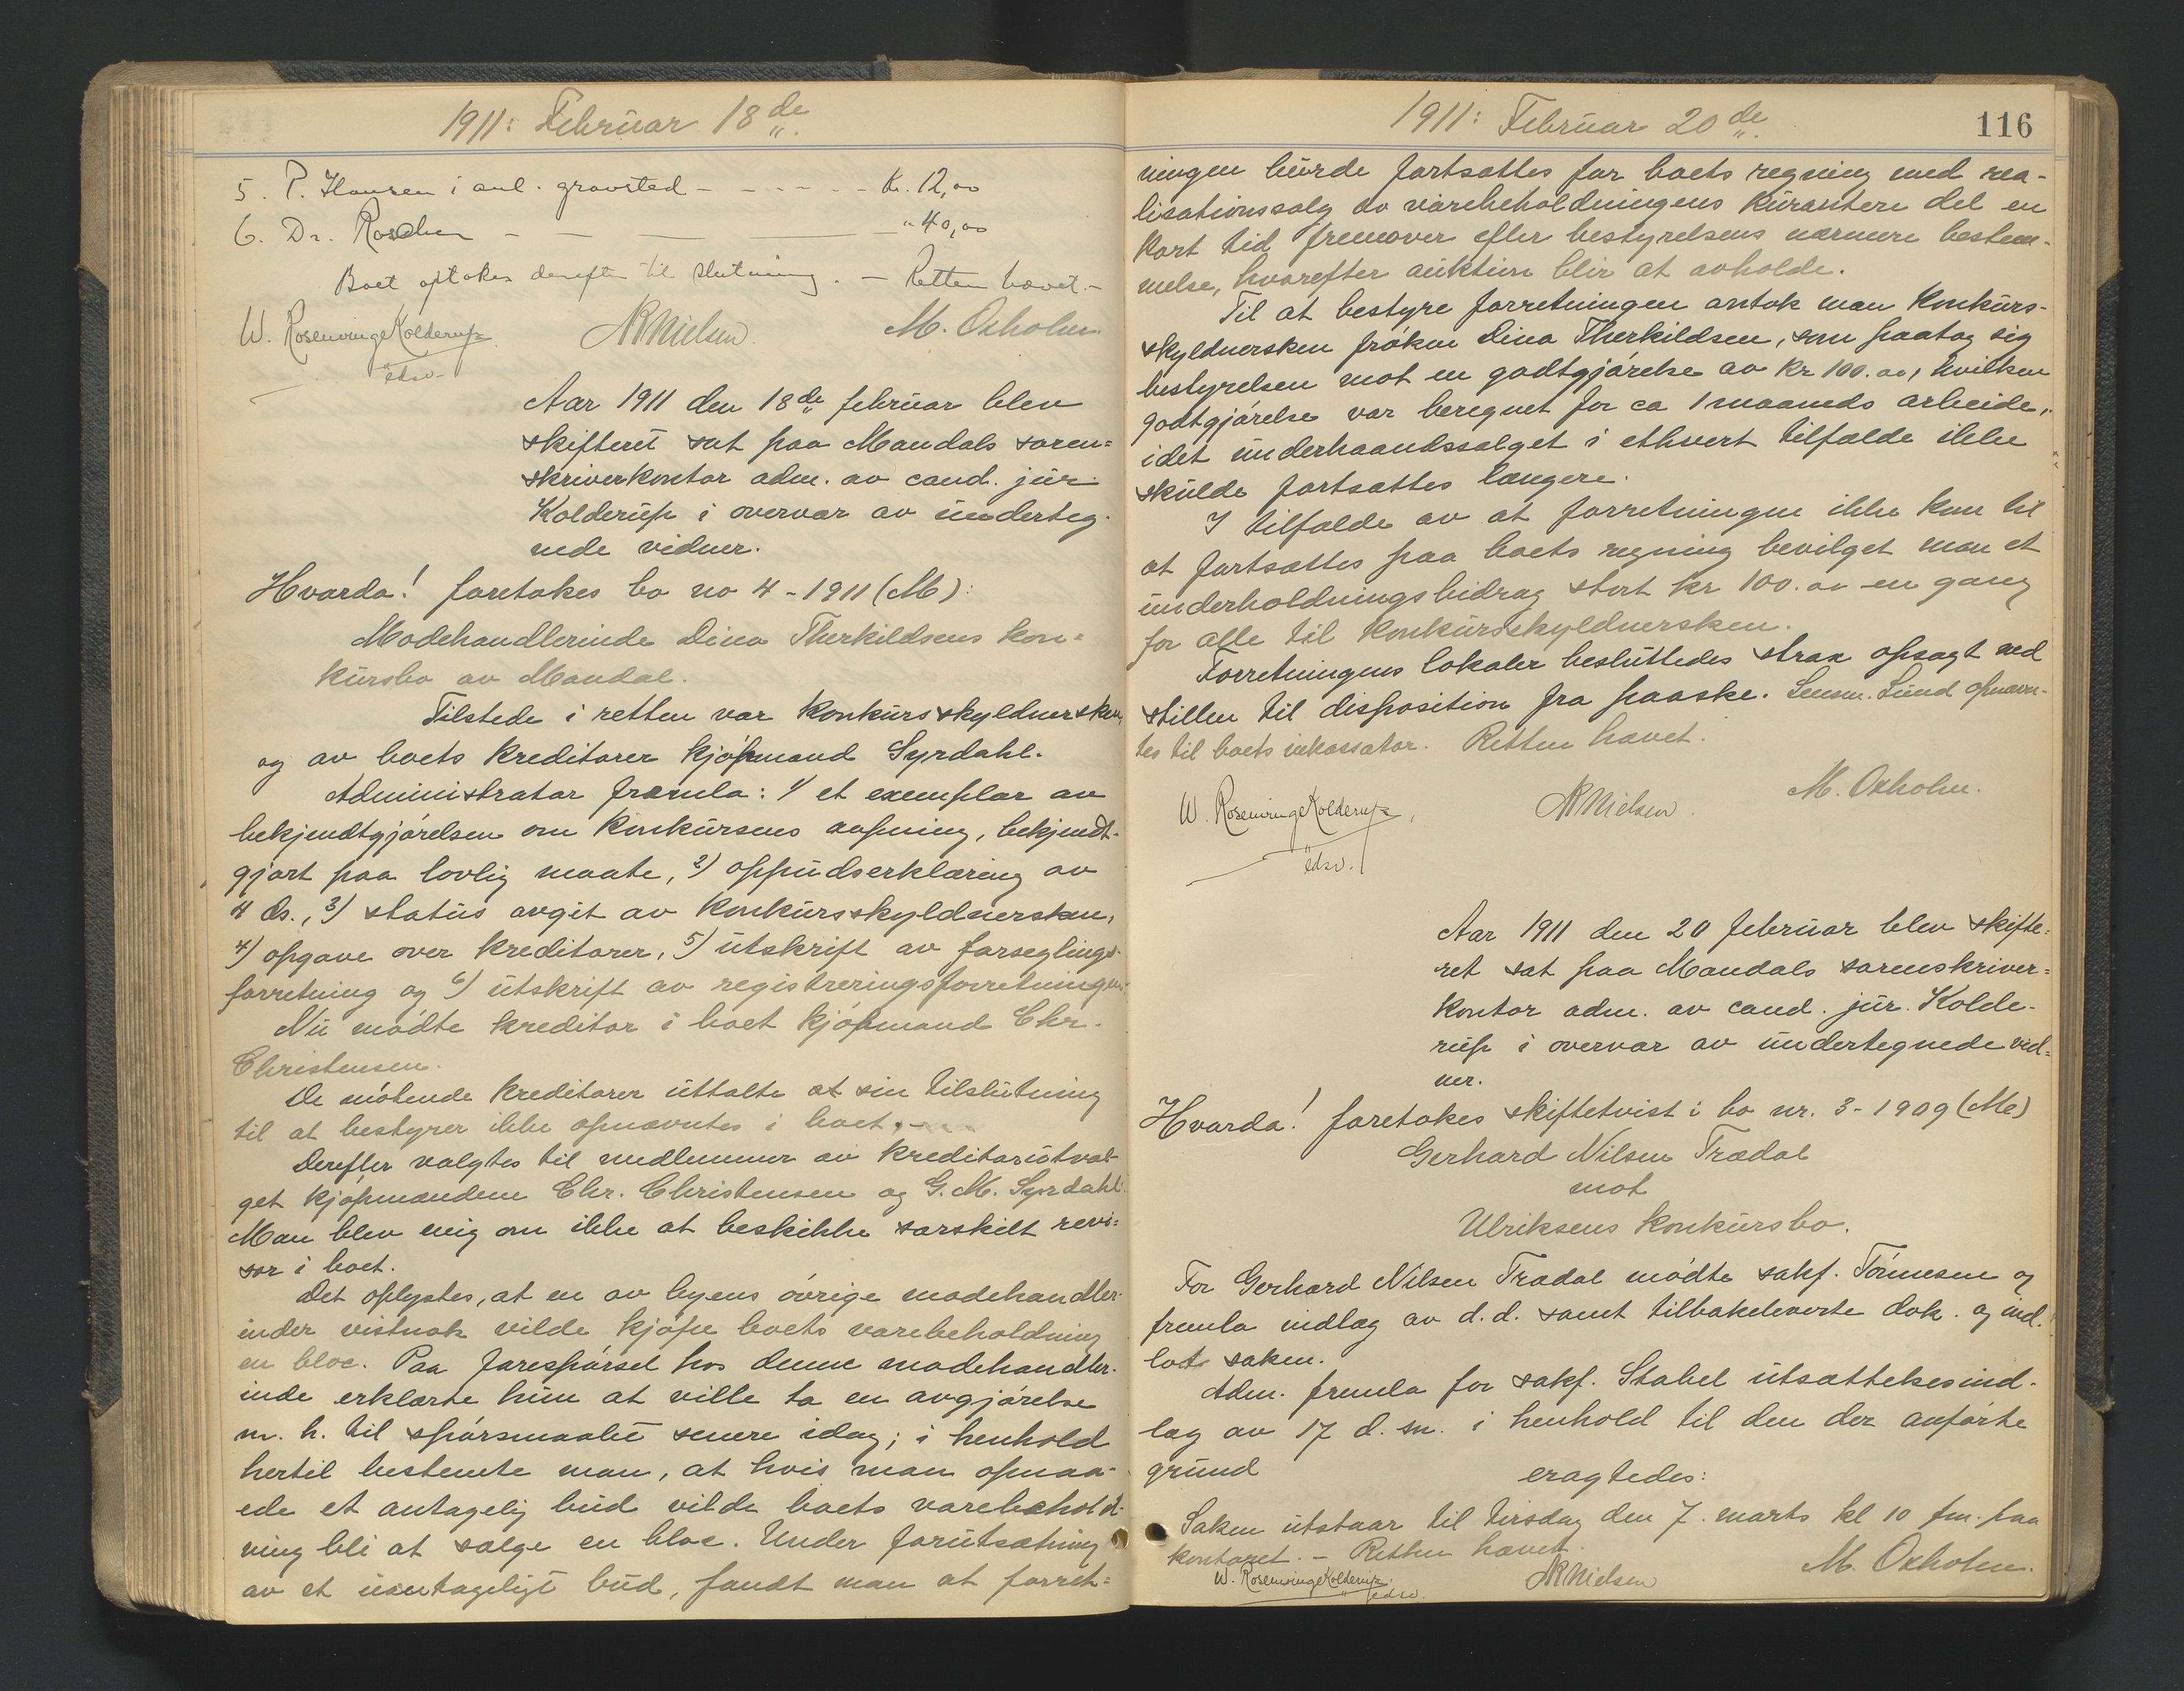 1911: Februar 18de
5. P. Hansen i anl. gravsted - - - - - - Kr. 12,00
6. Dr. - - - " 40,00
Boet optokes derefter til slutning. - Retten hævet. -
W. Rosenvinge Kolderup NRNielsen. M. Oxholm.
edsv.
Aar 1911 den 18de februar blev
skifteret sat paa Mandals soren=
skriverkontor adm. av cand. jur.
Kolderup i overvær av underteg-
nede vidner.
Hvorda! foretokes bo no 4 - 1911 (M):
Modehandlerinde Dina Therkildsens kon=
kursbo av Mandal.
Tilstede i retten var konkursskyldnersken
og av boets kreditorer kjøpmand Syrdahl.
Administrator fremla: 1) et exemplar av
bekjendtgjørelsen om konkursens aapning, bekjendt-
gjort paa lovlig maate, 2) oppudserklæring av
4 ds., 3) status avgit av konkursskyldnersken,
4) opgave over kreditorer, 5) utskrift av forseglings-
forretning og 6) utskrift av registreringsforretningen.
Nu mødte kreditor i boet kjøpmand Chr.
Christensen.
De møtende kreditorer uttalte at sin tilslutning
til at bestyrer ikke opnævntes i boet. -
Derefter valgtes til medlemmer av kreditorutval-
get kjøpmændene Chr. Christensen og G. M. Syrdahl.
Man blev enig om ikke at beskikke særskilt revi=
sor i boet.
Det oplystes, at en av byens øvrige modehandler-
inder vistnok vilde kjøpe boets varebeholdning
en bloc. Paa forespørsel hos denne modehandler-
inde erklærte hun at ville ta en avgjørelse
m. h. til spørsmaalet senere idag; i henhold
hertil bestemte man, at hvis man opnaa-
ede et antagelig bud vilde boets varebehold-
ning bli at sælge en bloc. Under forutsætning
av et uantageligt bud, fandt man at forret=
1911: Februar 20de
116
ningen burde fortsættes for boets regning med rea-
lisationssalg av varebeholdningens kurantere del en
kort tid fremover efter bestyrelsens nærmere bestem-
melse, hvorefter auktion blir at avholde.
Til at bestyre forretningen antok man konkurs-
skyldnersken frøken Dina Therkildsen, som paatog sig
bestyrelsen mot en godtgjørelse av kr 100.00, hvilken
godtgjørelse var beregnet for ca 1 maaneds arbeide,
idet underhaandssalget i ethvert tilfælde ikke
skulde fortsættes længere.
I tilfælde av at forretningen ikke kom til
at fortsættes paa boets regning bevilget man et
underholdningsbidrag stort kr 100.00 en gang
for alle til konkursskyldnersken.
Forretningens lokaler besluttedes strax opsagt ved
stillen til disposition fra paaske. Lensm. Lund opnævn-
tes til boets inkassator. Retten hævet.
W. Rosenvinge Kolderup, NRNielsen. M. Oxholm.
edsv.
Aar 1911 den 20 februar blev skifte=
ret sat paa Mandals sorenskriver=
kontor adm. av cand. jur. Kolde-
rup i overvær av undertegnede vid=
ner.
Hvorda! foretokes skiftetvist i bo nr. 3 - 1909 (Me)
Gerhard Nilsen Trædal
mot
Ulriksens konkursbo.
For Gerhard Nilsen Trædal mødte sakf. Tønnesen og
fremla indlæg av d.d. samt tilbakeleverte dok. og ind.
lot saken.
Adm. fremla for sakf. Stabel utsættelsesind-
læg av 17 d. m. i henhold til den der anførte
grund eragtedes:
Saken utstaar til tirsdag den 7. marts kl 10 fm. paa
kontoret. - Retten hævet.
W. Rosenvinge Kolderup. NRNielsen M. Oxholm.
edsv.